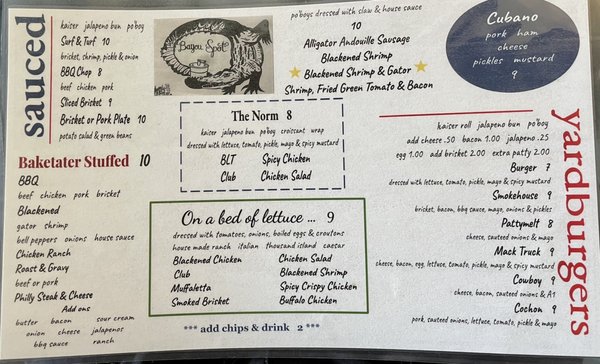 sauced
kaiser jalapeno bun po'boy
Surf & Turf 10
brisket, shrimp, pickle & onion
BBQ Chop 8
beef chicken pork
Sliced Brisket 9
Brisket or Pork Plate 10
potato salad & green beans
Baketater Stuffed 10
BBQ
beef chicken pork brisket
Blackened
gator shrimp
bell peppers onions house sauce
Chicken Ranch
Roast & Gravy
beef or pork
Philly Steak & Cheese
Add ons
butter bacon sour cream
onion cheese jalapenos
bbq sauce ranch
Bayou Spot
po'boys dressed with slaw & house sauce
10
Alligator Andouille Sausage
Blackened Shrimp
Blackened Shrimp & Gator
Shrimp, Fried Green Tomato & Bacon
The Norm 8
kaiser jalapeno bun po'boy croissant wrap
dressed with lettuce, tomato, pickle, mayo & spicy mustard
BLT Spicy Chicken
Club Chicken Salad
On a bed of lettuce ... 9
dressed with tomatoes, onions, boiled eggs & croutons
house made ranch italian thousand island caesar
Blackened Chicken Chicken Salad
Club Blackened Shrimp
Muffaletta Spicy Crispy Chicken
Smoked Brisket Buffalo Chicken
*** add chips & drink 2 ***
Cubano
pork ham
cheese
pickles mustard
9
yardburgers
kaiser roll jalapeno bun po'boy
add cheese .50 bacon 1.00 jalapeno .25
egg 1.00 add brisket 2.00 extra patty 2.00
Burger 7
dressed with lettuce, tomato, pickle, mayo & spicy mustard
Smokehouse 9
brisket, bacon, bbq sauce, mayo, onions & pickles
Pattymelt 8
cheese, sauteed onions & mayo
Mack Truck 9
cheese, bacon, egg, lettuce, tomato, pickle, mayo & spicy mustard
Cowboy 9
cheese, bacon, sauteed onions & A1
Cochon 9
pork, sauteed onions, lettuce, tomato, pickle & mayo